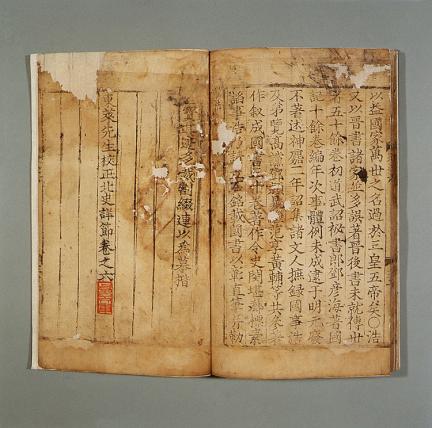 以益國家萬世之名過於三皇五帝矣浩
又以晉書諸家並多誤著晉後書未就傳世
者五十餘卷初道武詔秘書郎鄧彦海著國
記十餘卷編年次事體例未成逮于明元廢
不著述神䴥二年詔集諸文人撰録國事浩
及弟覽高讜鄧範亨黃輔等共參著
作叙成國書三十卷著作令史閔堪標素
諂事浩乃石銘載國書以彰直筆
多裁割綴連以為
東萊先生校正北史詳節卷之六